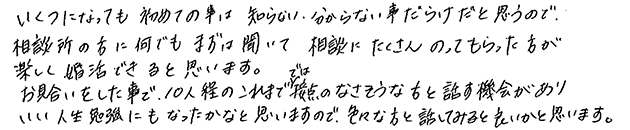 いくつになっても 初めての事は 知らない・分からない事だらけだと思うので、
相談所の方に何でも まずは聞いて 相談に たくさん のってもらった方が
楽しく 婚活できると思います。
お見合いをした事で、10人程のこれまででは接点のなさそうな方と話す機会があり
いい人生勉強にもなったかなと思いますので、色々な方と話してみると良いかと思います。